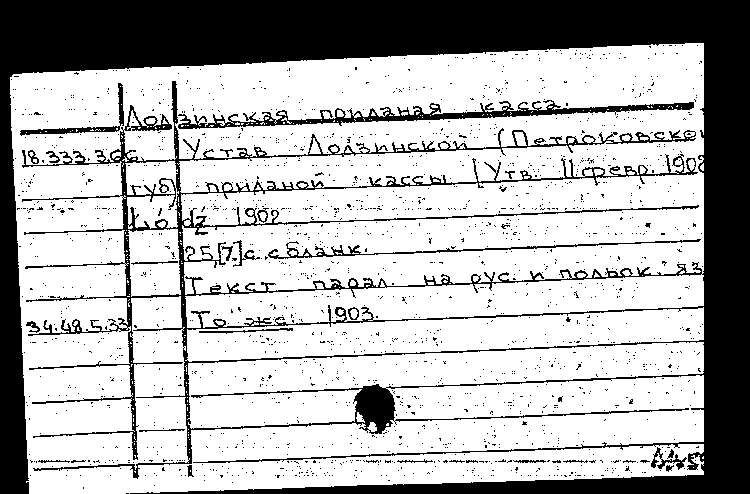 Лодзинская приданая касса.
18.333.3.66. Устав Лодзинской (Петроковской
губ) приданой кассы [Утв. 11 февр. 1902
Łódź, 1902
25,[7]с. с бланк.
Текст парал. на рус. и польск. яз
34.48.5.33. То же. 1903.